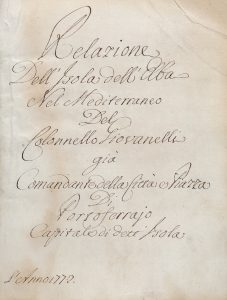 Relazione
Dell'Isola dell'Elba
Nel Mediterraneo
Del
Colonnello Giovanelli
già
Comandante della Città e Piazza
Di
Portoferrajo
Capitale di dett'Isola
L'Anno 1773.